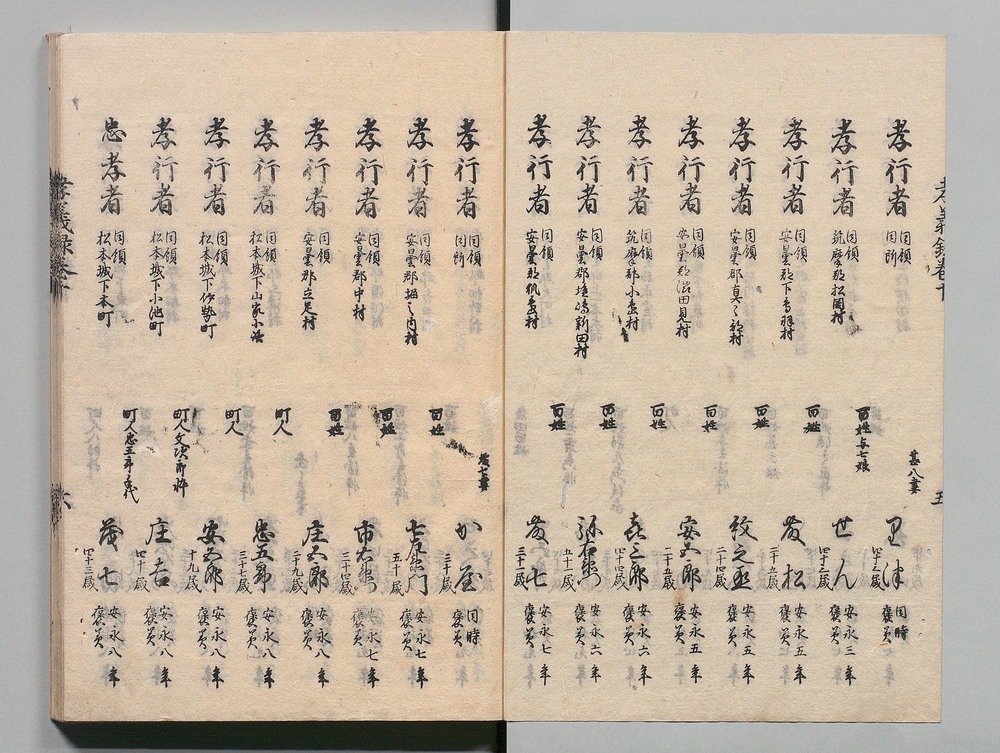 孝行者 同領同所 甚八妻 里津 四十三歳 同時褒美
孝行者 同領筑摩郡松岡村 百姓与七娘 せん 四十二歳 安永三年褒美
孝行者 同領安曇郡下鳥羽村 百姓 友松 二十五歳 安永五年褒美
孝行者 同領安曇郡真々部村 百姓 紋之丞 二十四歳 安永五年褒美
孝行者 同領安曇郡澁田見村 百姓 安五郎 二十五歳 安永五年褒美
孝行者 同領筑摩郡小俣村 百姓 喜三郎 四十四歳 安永六年褒美
孝行者 同領安曇郡 嶋新田村 百姓 弥右衛門 五十一歳 安永六年褒美
孝行者 同領安曇郡 村 百姓 友七 三十一歳 安永七年褒美
五
孝義録巻十
孝行者 同領同所 友七妻 か屋 三十歳 同時褒美
孝行者 同領安曇郡堀之内村 百姓 七左衛門 五十歳 安永七年褒美
孝行者 同領安曇郡中村 百姓 市右衛門 三十四歳 安永七年褒美
孝行者 同領安曇郡立足村 百姓 庄五郎 二十九歳 安永八年褒美
孝行者 同領松本城下山家小路 町人 忠五郎 三十一歳 安永八年褒美
孝行者 同領松本城下伊勢町 町人 安五郎 十九歳 安永八年褒美
孝行者 同領松本城下小池町 町人文次郎忰 庄吉 四十歳 安永八年褒美
忠孝者 同領松本城下本町 町人忠五郎手代 茂七 四十三歳 安永八年褒美
孝義録巻十
六